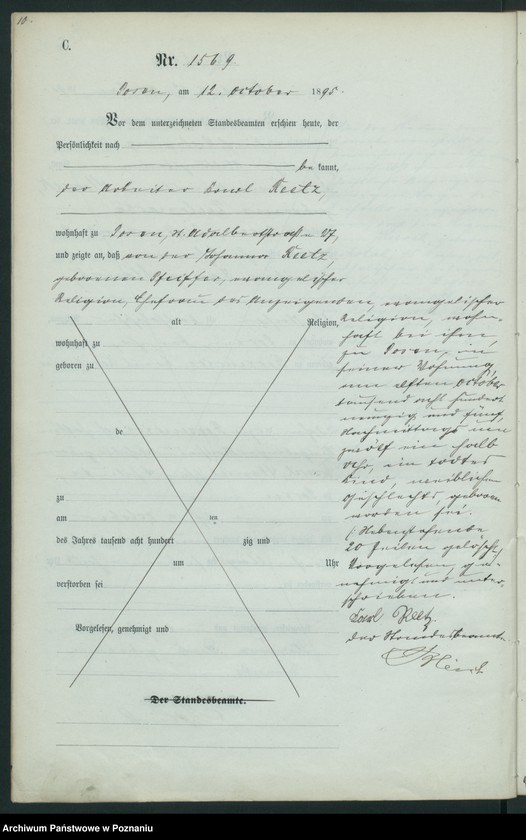 10.
C.
Nr. 1569.
Posen, am 12. October 1895.
Vor dem unterzeichneten Standesbeamten erschien heute, der
Persönlichkeit nach
bekannt,
der Arbeiter Karl Reetz,
wohnhaft zu Posen, St. Adalbertstraße 27,
und zeigte an, daß von der Johanna Reetz,
geborenen Pfeiffer, evangelischer
Religion, Ehefrau des Anzeigenden, evangelischer
Religion, wohn-
haft bei ihm,
zu Posen, in
seiner Wohnung,
am elften October
tausend acht hundert
neunzig und fünf,
Nachmittags um
zwölf ein halb
Uhr, ein todtes
Kind, weiblichen
Geschlechts, geboren
worden sei.
20 Zeilen gelöscht.
Vorgelesen, ge-
nehmigt und unter-
schrieben.
Karl Reetz
Der Standesbeamte.
alt Religion,
wohnhaft zu
geboren zu
de
zu
am im
des Jahres tausend acht hundert zig und
um Uhr
verstorben sei
Vorgelesen, genehmigt und
Der Standesbeamte.
Archiwum Państwowe w Poznaniu